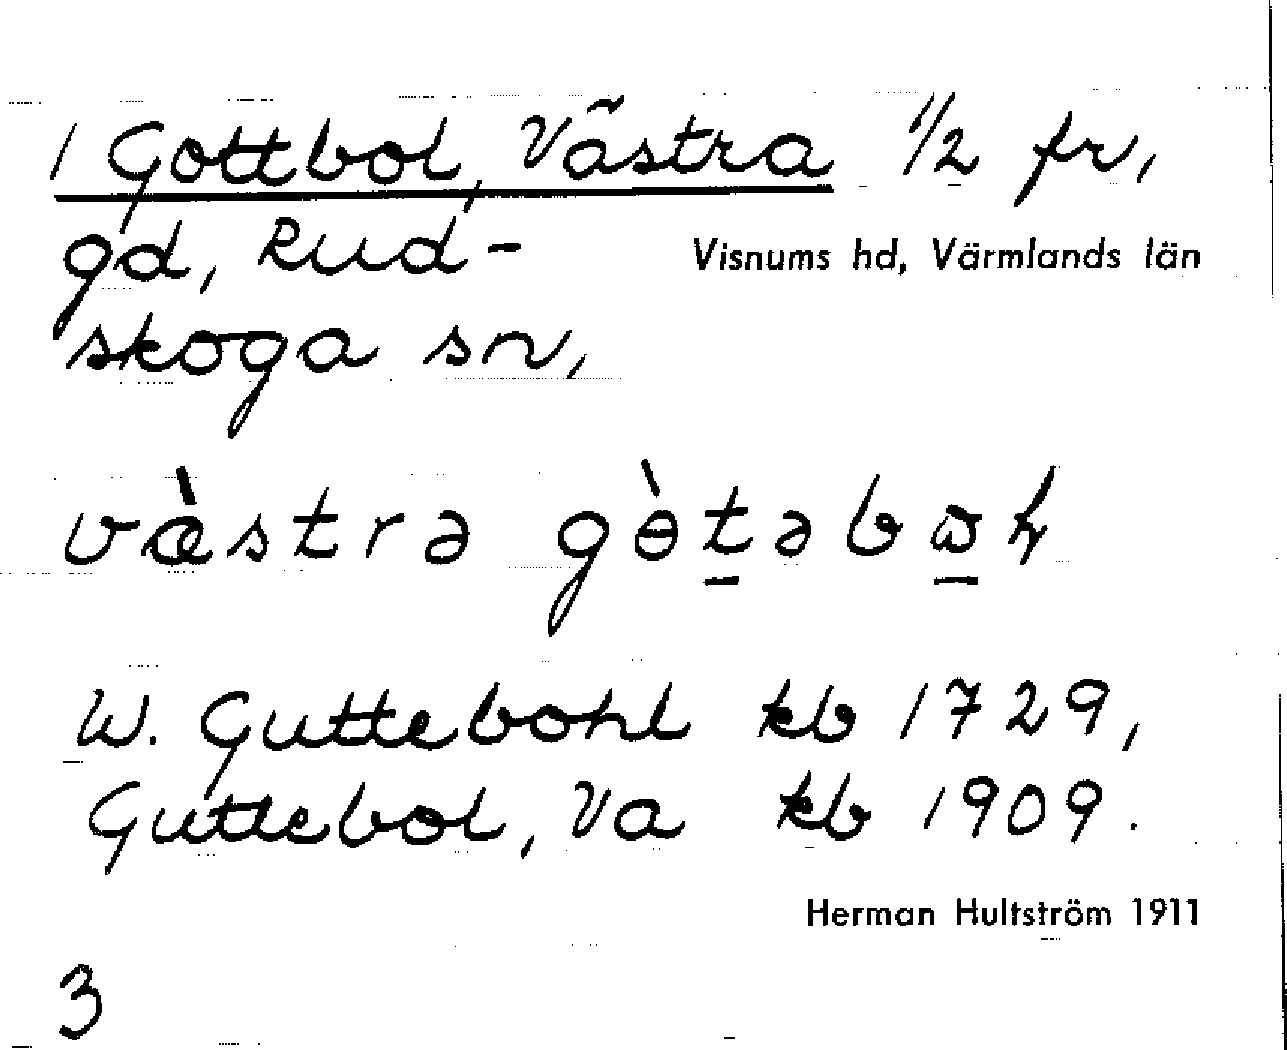 1 Gottbol, Västra 1/2 fr,
gd, Rud-
skoga sn,
Visnums hd, Värmlands län
vὰstrə gɵ̀t̠əbω̠ɫ
W. Guttebohl kb 1729,
Guttebol, Va kb 1909.
Herman Hultström 1911
3